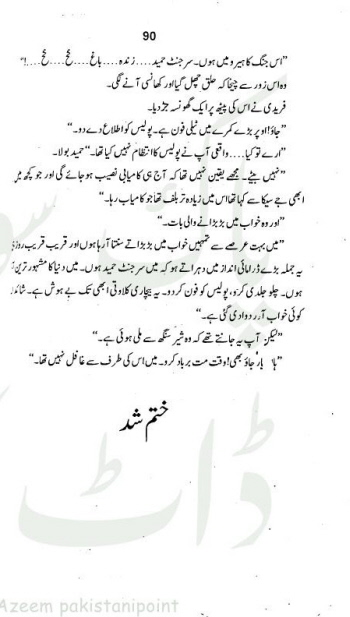 90
”اس جنگ کا ہیرو میں ہوں۔ سرجنٹ حمید.... زندہ.... باغ.... غخ.... غخ....!“
وہ اس زور سے چیخا کہ حلق چھل گیا اور کھانسی آنے لگی۔
فریدی نے اس کی پیٹھ پر ایک گھونسہ جڑ دیا۔
”جاؤ! اوپر بڑے کمرے میں ٹیلی فون ہے۔ پولیس کو اطلاع دے دو۔“
”ارے تو کیا.... واقعی آپ نے پولیس کا انتظام نہیں کیا تھا۔“ حمید بولا۔
”نہیں بیٹے۔ مجھے یقین نہیں تھا کہ آج ہی کامیابی نصیب ہو جائے گی اور جو کچھ میں
ابھی جے سیکا سے کہا تھا اس میں زیادہ تر بلف تھا جو کامیاب رہا۔“
”اور وہ خواب میں بڑبڑانے والی بات۔“
”میں بہت عرصے سے تمہیں خواب میں بڑبڑاتے سنتا آرہا ہوں اور قریب قریب روز
یہ جملہ بڑے ڈرامائی انداز میں دہراتے ہو کہ میں سرجنٹ حمید ہوں۔ میں دنیا کا مشہور ترین
ہوں۔ چلو جلدی کرو، پولیس کو فون کردو۔ یہ بیچاری کلاوتی ابھی تک بے ہوش ہے۔ شائد
کوئی خواب آور دوا دی گئی ہے۔“
”لیکن آپ یہ جانتے تھے کہ وہ شیر سنگھ سے ملی ہوئی ہے۔“
”ہاں جاؤ بھی! وقت مت برباد کرو۔ میں اس کی طرف سے غافل نہیں تھا۔“
ختم شد
پاک
ڈاٹ
Azeem pakistanipoint